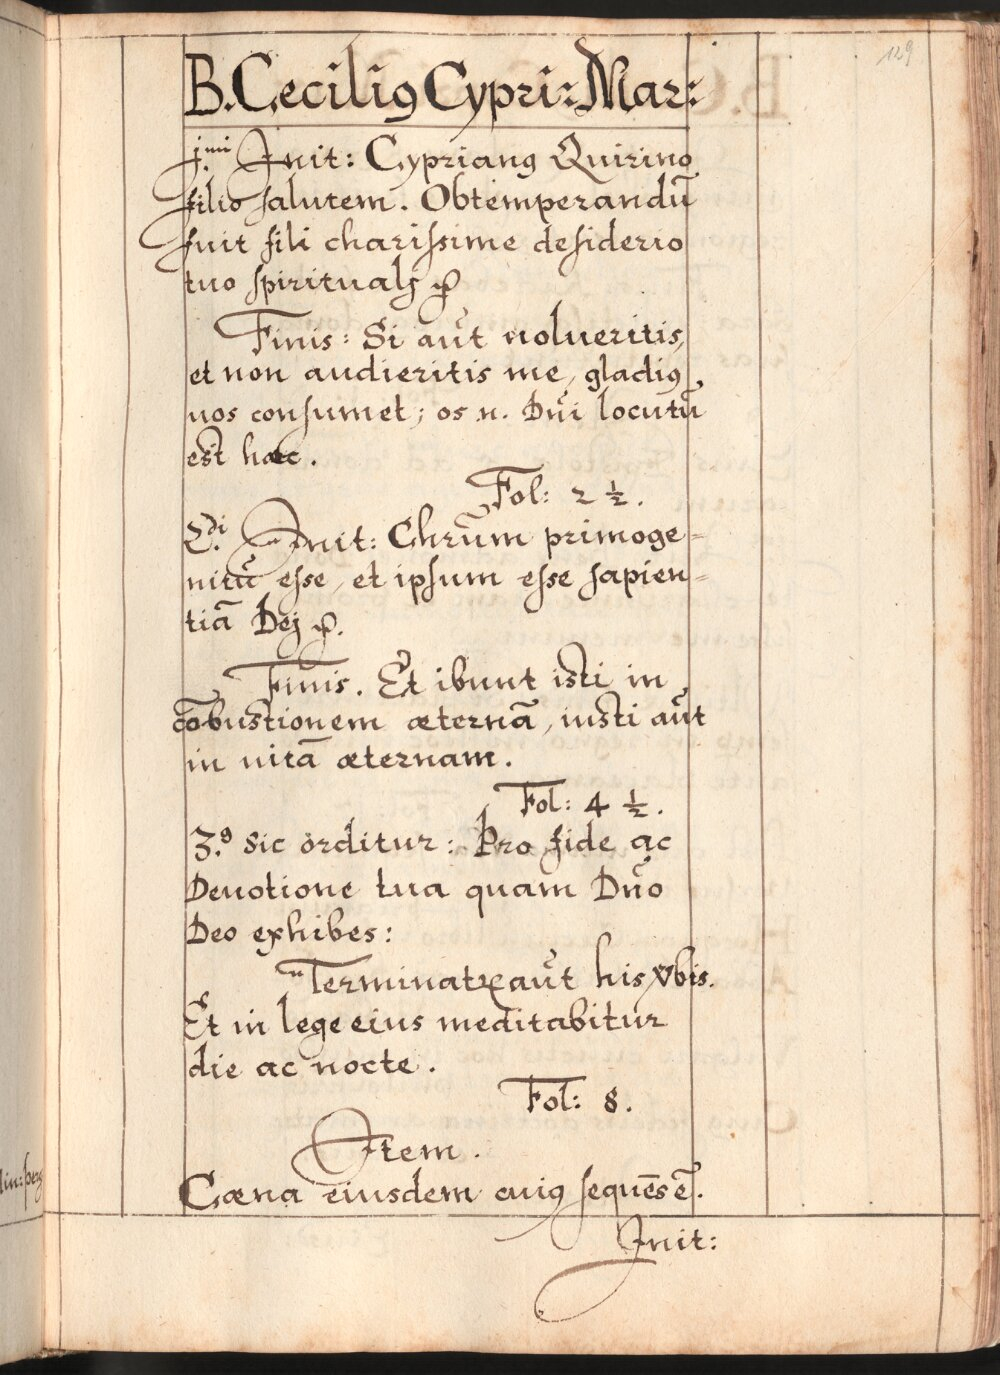 129
B. Ceciliꝰ Cypri: Mar:
j.mi Init: Cyprianꝰ Quirino
filio salutem. Obtemperandū
fuit fili charissime desiderio
tuo spiritualj ꝛc
Finis: Si aūt nolueritis,
et non audieritis me, gladiꝰ
uos consumet; os n. Dn̄i locutū
est haec.
Fol: 2 ½.
2.di Init: Chr̄um primoge-
nitū esse, et ipsum esse sapien-
tiā Dej ꝛc.
Finis. Et ibunt isti in
cōbustionem æternā, iusti aūt
in uitā æternam.
Fol: 4 ½.
3.º Sic orditur: Pro fide ac
Deuotione tua quam Dn̄o
Deo exhibes:
Terminatꝛ aūt his ѵbis.
Et in lege eius meditabitur
die ac nocte.
Fol: 8.
Item.
Cæna eiusdem cuiꝰ sequēs ē.
Init: